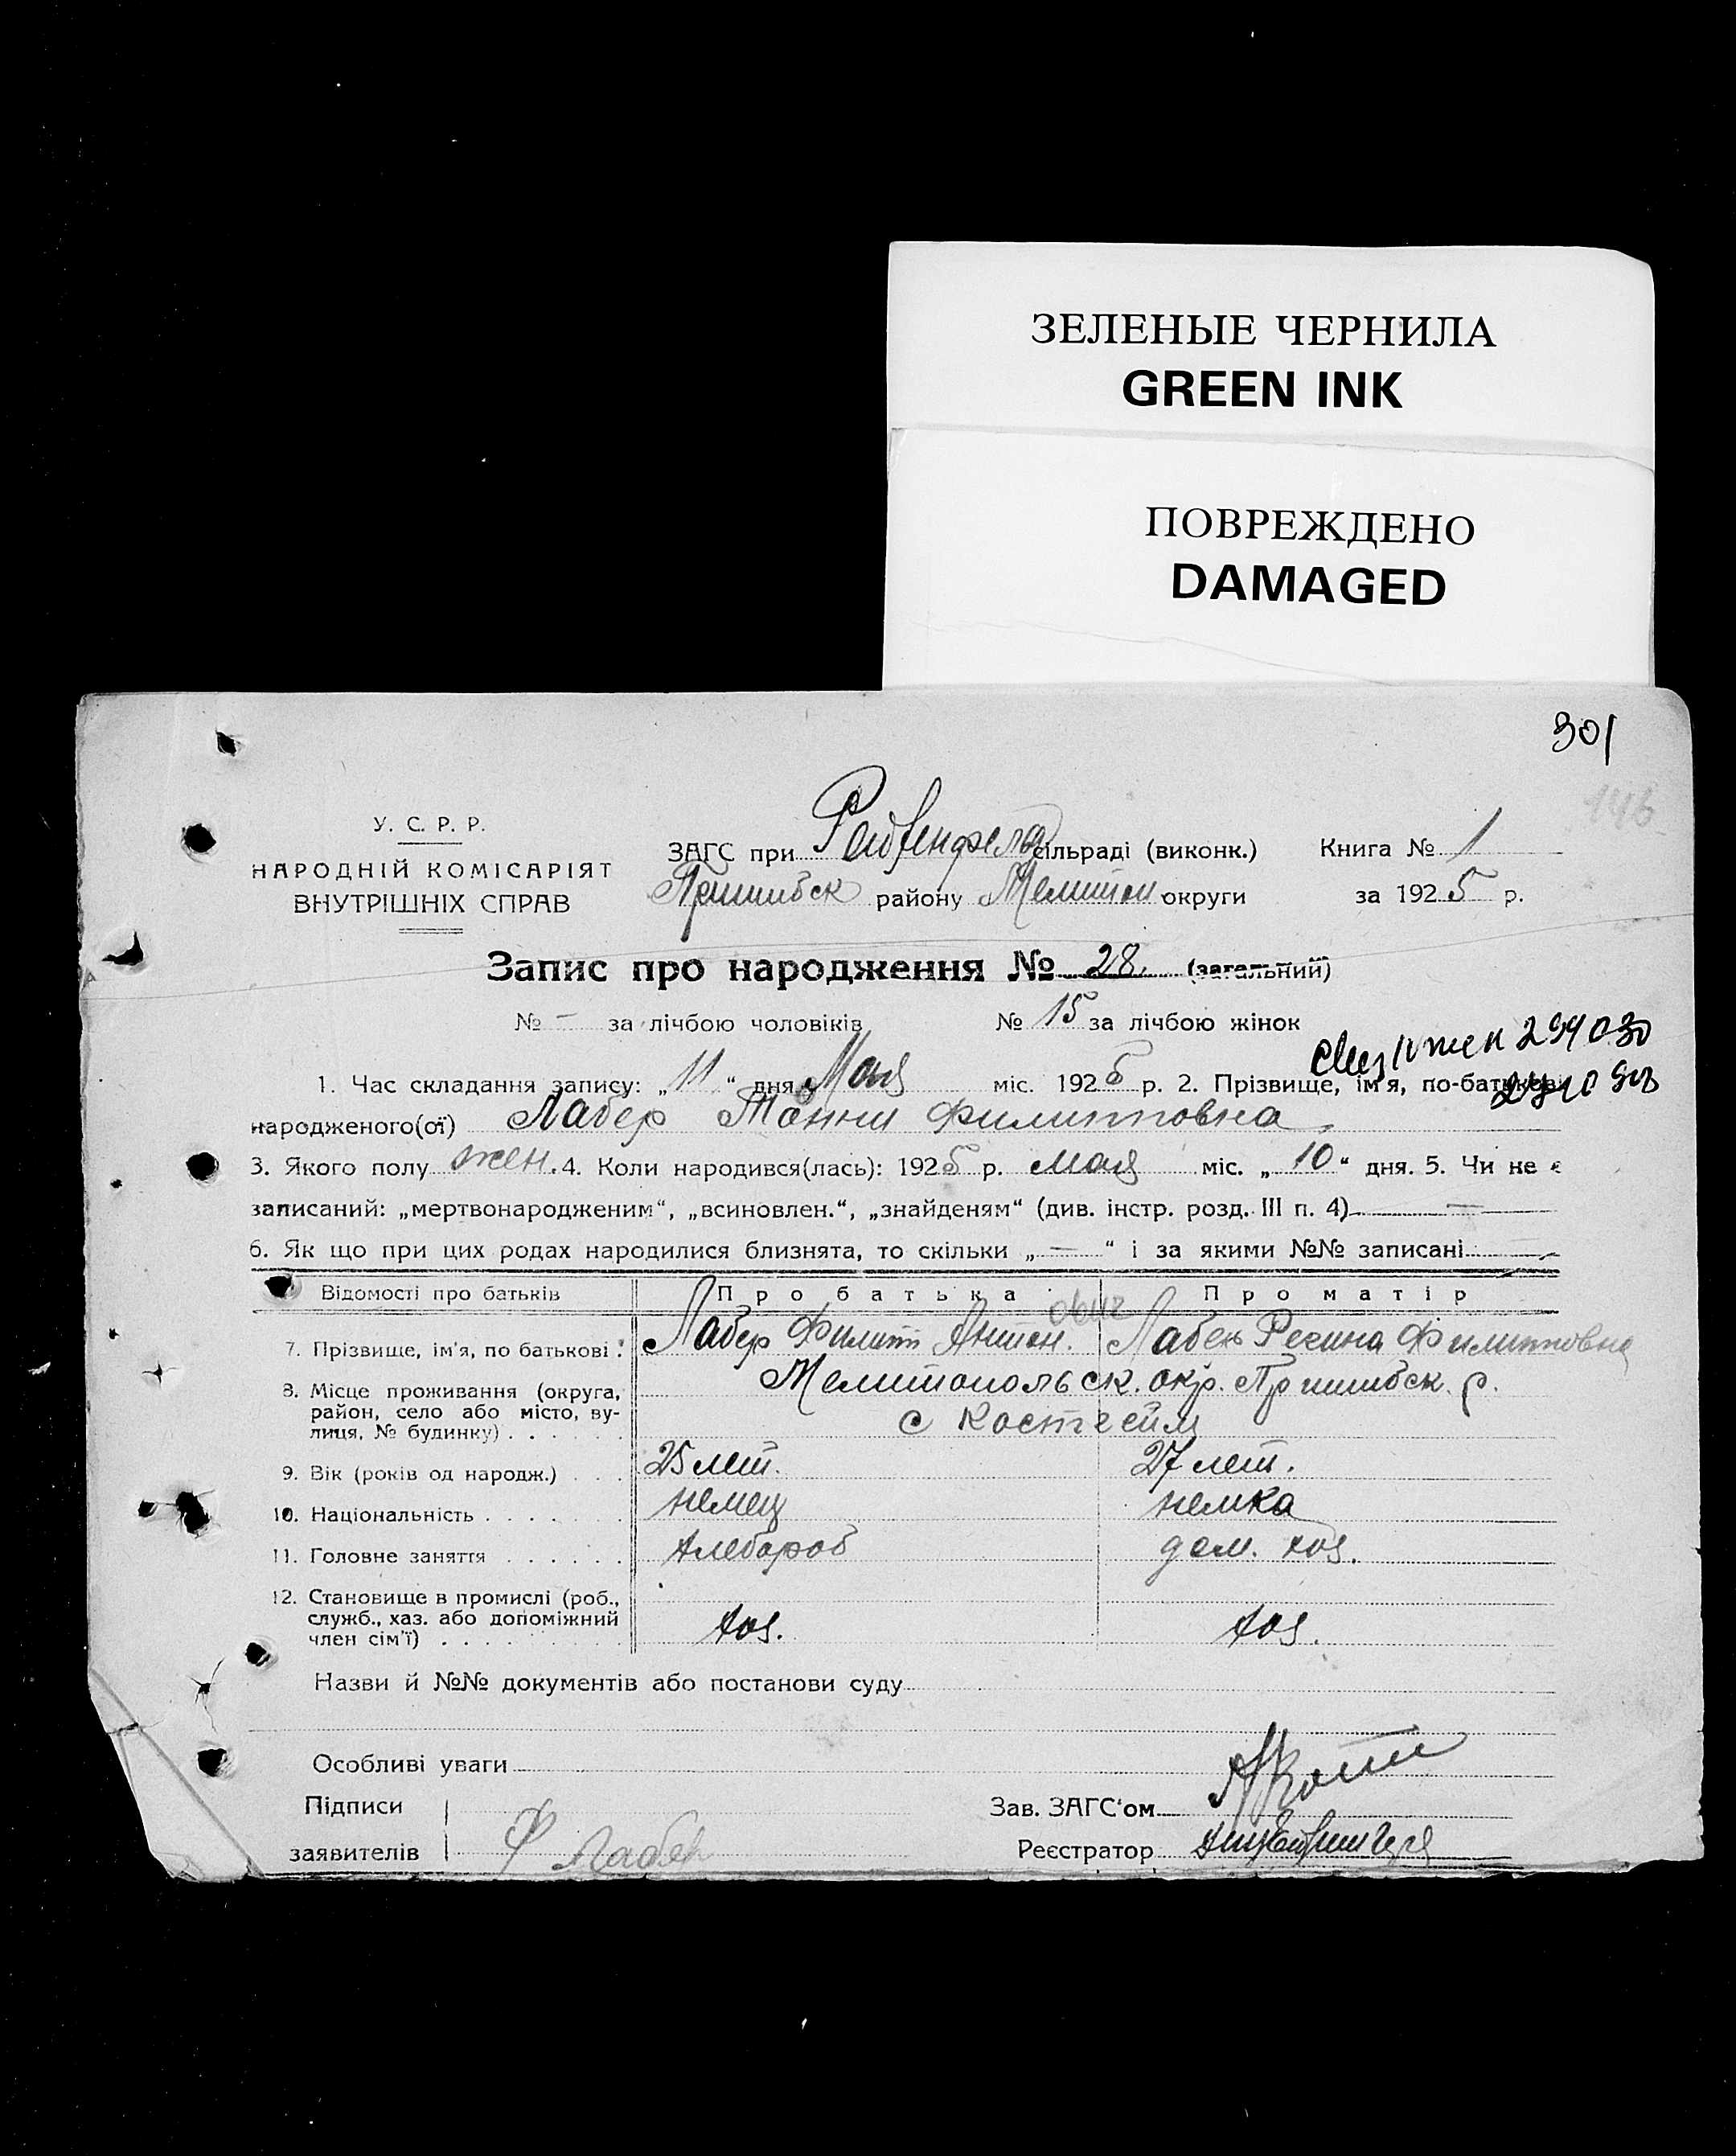 ЗЕЛЕНЫЕ ЧЕРНИЛА
GREEN INK
ПОВРЕЖДЕНО
DAMAGED
301
146
У. С. Р. Р.
НАРОДНІЙ КОМІСАРІЯТ
ВНУТРІШНІХ СПРАВ
ЗАГС при Рейхенфельд сільраді (виконк.) Книга № 1
Пришибск району Мелитоп округи за 1925 р.
Запис про народження № 28. (загальний)
№ – за лічбою чоловіків № 15 за лічбою жінок
294030
1. Час складання запису: „11“ дня Мая міс. 1925 р. 2. Прізвище, ім'я, по-батькові
народженого(ої) Лабер Тонни Филипповна
3. Якого полу жен. 4. Коли народився(лась): 1925 р. мая міс. „10“ дня. 5. Чи не є
записаний: „мертвонародженим“, „всиновлен.“, „знайденям“ (див. інстр. розд. III п. 4) —
6. Як що при цих родах народилися близнята, то скільки „—“ і за якими №№ записані —
Відомості про батьків Про батька Про матір
7. Прізвище, ім'я, по батькові: Лабер Филипп Антон.ович Лабер Регина Филипповна
8. Місце проживання (округа, район, село або місто, вулиця, № будинку) Мелитопольск. окр. Пришибск. р.
с Костгейм
9. Вік (років од народж.) 25 лет. 27 лет.
10. Національність немец немка
11. Головне заняття хлебороб дом. хоз.
12. Становище в промислі (роб., служб., хаз. або допоміжний член сім'ї) хоз. хоз.
Назви й №№ документів або постанови суду
Особливі уваги
Підписи заявителів Ф Лабер
Зав. ЗАГС'ом
Реєстратор